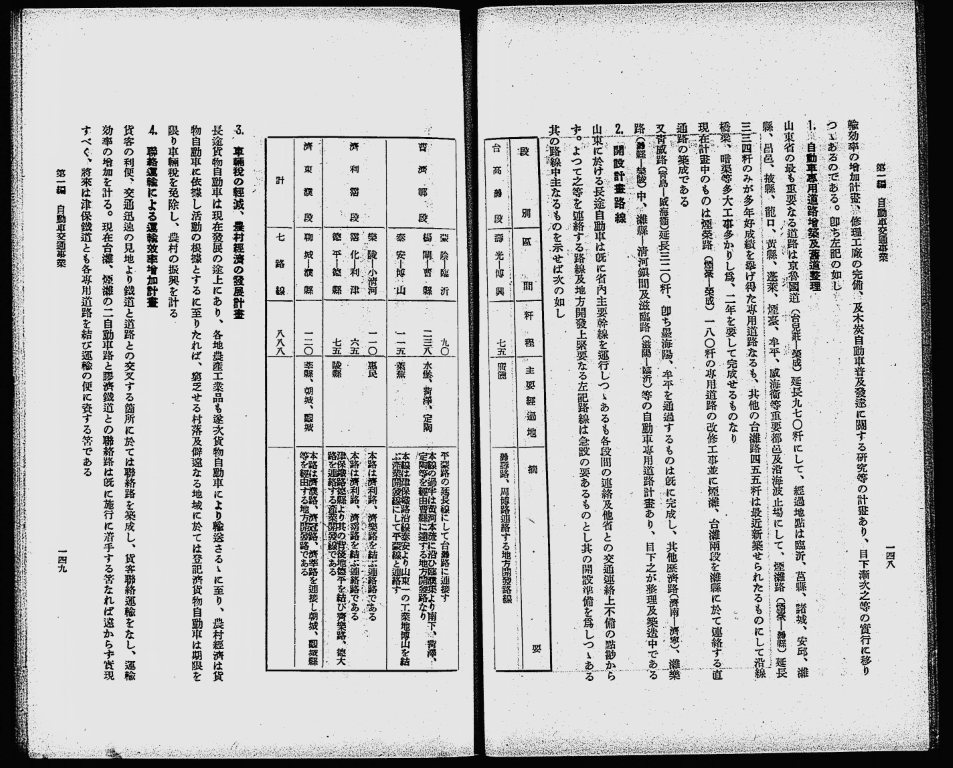 第一編　自動車交通事業
一四八
輸効率の増加計畫、修理工廠の完備、及木炭自動車普及發達に關する研究等の計畫あり、目下漸次之等の實行に移り
つゝあるのである。卽ち左記の如し
1. 自動車專用道路增築及舊道整理
山東省の最も重要なる道路は京魯國道（台兒莊―榮成）延長九七〇粁にして、經過地點は臨沂、莒縣、諸城、安邱、濰
縣、昌邑、掖縣、龍口、黃縣、蓬萊、煙臺、牟平、威海衞等重要都邑及沿海波止場にして、煙濰路（煙臺―濰縣）延長
三三四粁のみが多年好成績を擧げ得た專用道路なるも、其他の台濰路四五五粁は最近新築せられたるものにして沿線
橋梁、暗渠等多大工事多かりし爲、二年を要して完成せるものなり
現在計畫中のものは煙榮路（煙臺―榮成）一八〇粁の專用道路の改修工事並に煙濰、台濰兩段を濰縣に於て連絡する直
通路の築成である
又靑威路（靑島―威海衞）延長三二〇粁、卽ち墨海陽、牟平を通過するものは旣に完成し、其他歷濟路（濟南―濟寧）、濰樂
路（濰縣―樂陵）中、濰縣―淸河鎭間及滋臨路（滋陽―臨沂）等の自動車專用道路計畫あり、目下之が整理及築造中である
2. 開設計畫路線
山東に於ける長途自動車は旣に省內主要幹線を運行しつゝあるも各段間の連絡及他省との交通連絡上不備の點尠から
ず。よつて之等を連絡する路線及地方開發上緊要なる左記路線は急設の要あるものとし其の開設準備を爲しつゝある
其の路線中主なるものを示せば次の如し
段別　區間　粁程　主要經過地　摘要
台高濰段　壽光―博興　七五　廣饒　濰壽路、周博路連絡する地方開發路線
曹濟鄆段　蒙陰―臨沂　九〇　平蒙路の延長線にして台濰路に連接す
楊閘―曹縣　二三八　水堡、菏澤、定陶　本線の過半は黃河本堤に沿ひ臨濮集より南下、菏澤、
定陶等を經由曹縣に達する地方開發路なり
泰安―博山　一一五　萊蕪　本線は津保鐵路沿線泰安より山東一の工業地博山を結
ぶ產業開發線にして平蒙線と連絡す
濟利霑段　樂陵―小淸河　一一〇　惠民　本路は濟利路、濟樂路を結ぶ連絡路である
霑化―利津　六五　本路は濟利路、濟霑路を結ぶ連絡路である
德平―德縣　七五　陵縣　津保鐵路德縣より其の背後地德平を結び濟樂路、德大
路を連絡する產業開發線である
濟東濮段　聊城―濮縣　一二〇　莘縣、朝城、觀城　本路は濟濮路、濟冠路、濟莘路を連接し朝城、觀城縣
等を經由する地方開發路である
計　七路線　八八八
3. 車輛稅の輕減、農村經濟の發展計畫
長途貨物自動車は現在發展の途上にあり、各地農產工業品も逐次貨物自動車により輸送さるゝに至り、農村經濟は貨
物自動車に依據し活動の根據とするに至りたれば、窮乏せる村落及僻遠なる地域に於ては登記濟貨物自動車は期限を
限り車輛稅を免除し、農村の振興を計る
4. 聯絡運輸による運輸效率增加計畫
貨客の利便、交通迅速の見地より鐵道と道路との交叉する箇所に於ては聯絡路を築成し、貨客聯絡運輸をなし、運輸
効率の增加を計る。現在台濰、煙濰の二自動車路と膠濟鐵道との聯絡路は旣に施行に着手する筈なれば遠からず實現
すべく、將來は津保鐵道とも各專用道路を結び運輸の便に資する筈である
第一編　自動車交通事業
一四九